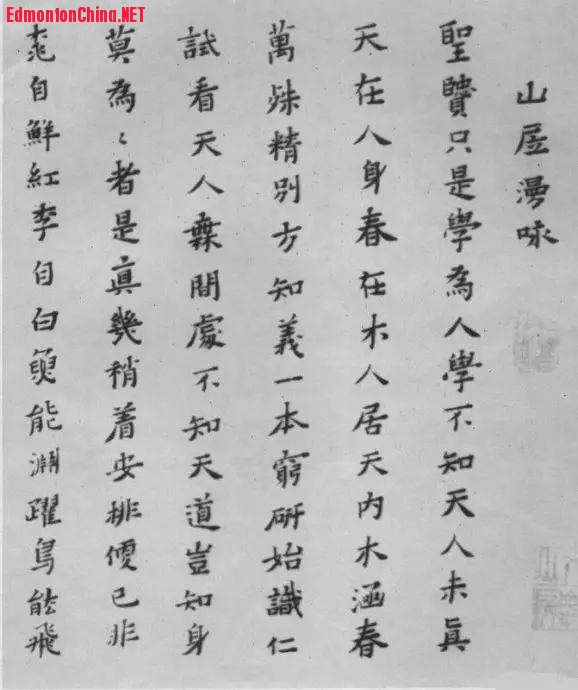 EdmontonChina.NET
山居漫咏
聖賢只是學為人學不知天人未眞
天在人身春在木人居天内木涵春
萬殊精別方知義一本窮研始識仁
試看天人無間處不知天道豈知身
莫為〻者是眞幾稍着安排便已非
桃自鮮紅李自白魚能淵躍鳥能飛